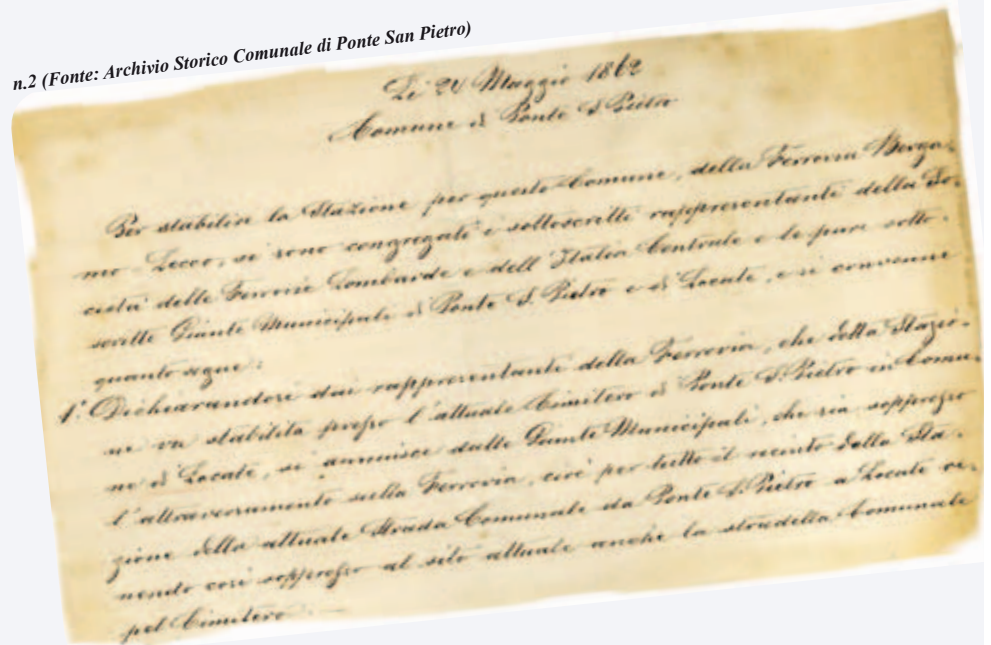 n.2 (Fonte: Archivio Storico Comunale di Ponte San Pietro)
Li 20 Maggio 1862
Comune di Ponte S. Pietro
Per stabilire la Stazione per questo Comune, della Ferrovia Berga-
mo-Lecco, si sono congregati i sottoscritti rappresentanti della So-
cietà delle Ferrovie Lombarde e dell'Italia Centrale e le pure sotto-
scritte Giunte Municipali di Ponte S. Pietro e di Locate, e si convenne
quanto segue:
1.° Dichiarandosi dai rappresentanti della Ferrovia, che detta Stazio-
ne va stabilita presso l'attuale Cimitero di Ponte S. Pietro in Comu-
ne di Locate, si annuisce dalle Giunte Municipali, che sia soppresso
l'attraversamento sulla Ferrovia, cioè per tutto il recinto della Sta-
zione della attuale Strada Comunale da Ponte S. Pietro a Locate ve-
nendo così soppresso al sito attuale anche la stradella Comunale
pel Cimitero.